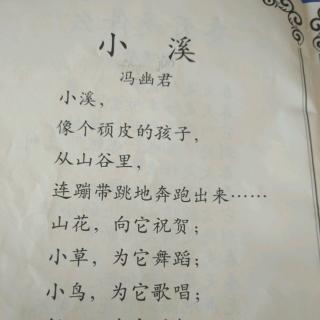 小 溪
冯幽君
小溪，
像个顽皮的孩子，
从山谷里，
连蹦带跳地奔跑出来……
山花，向它祝贺；
小草，为它舞蹈；
小鸟，为它歌唱；